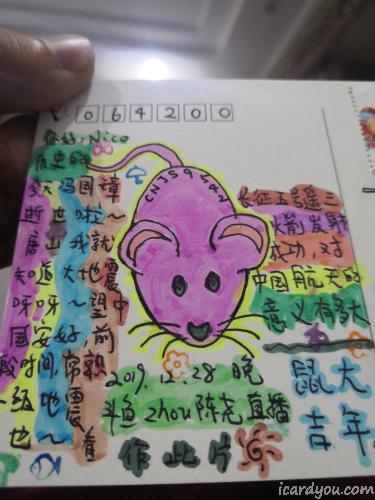 064200
您好:Nico
历史的
冯国璋
逝世啦~
唐山我就
知道大~地震
呀呀~望中
国安好~前
段时间,
一级地~震着
也~
长征五号遥三
火箭发射
成功,对
中国航天的
意义有多大
2019.12.28晚
斗鱼zhou陈尧直播
作此片
鼠大
吉年
icardyou.com